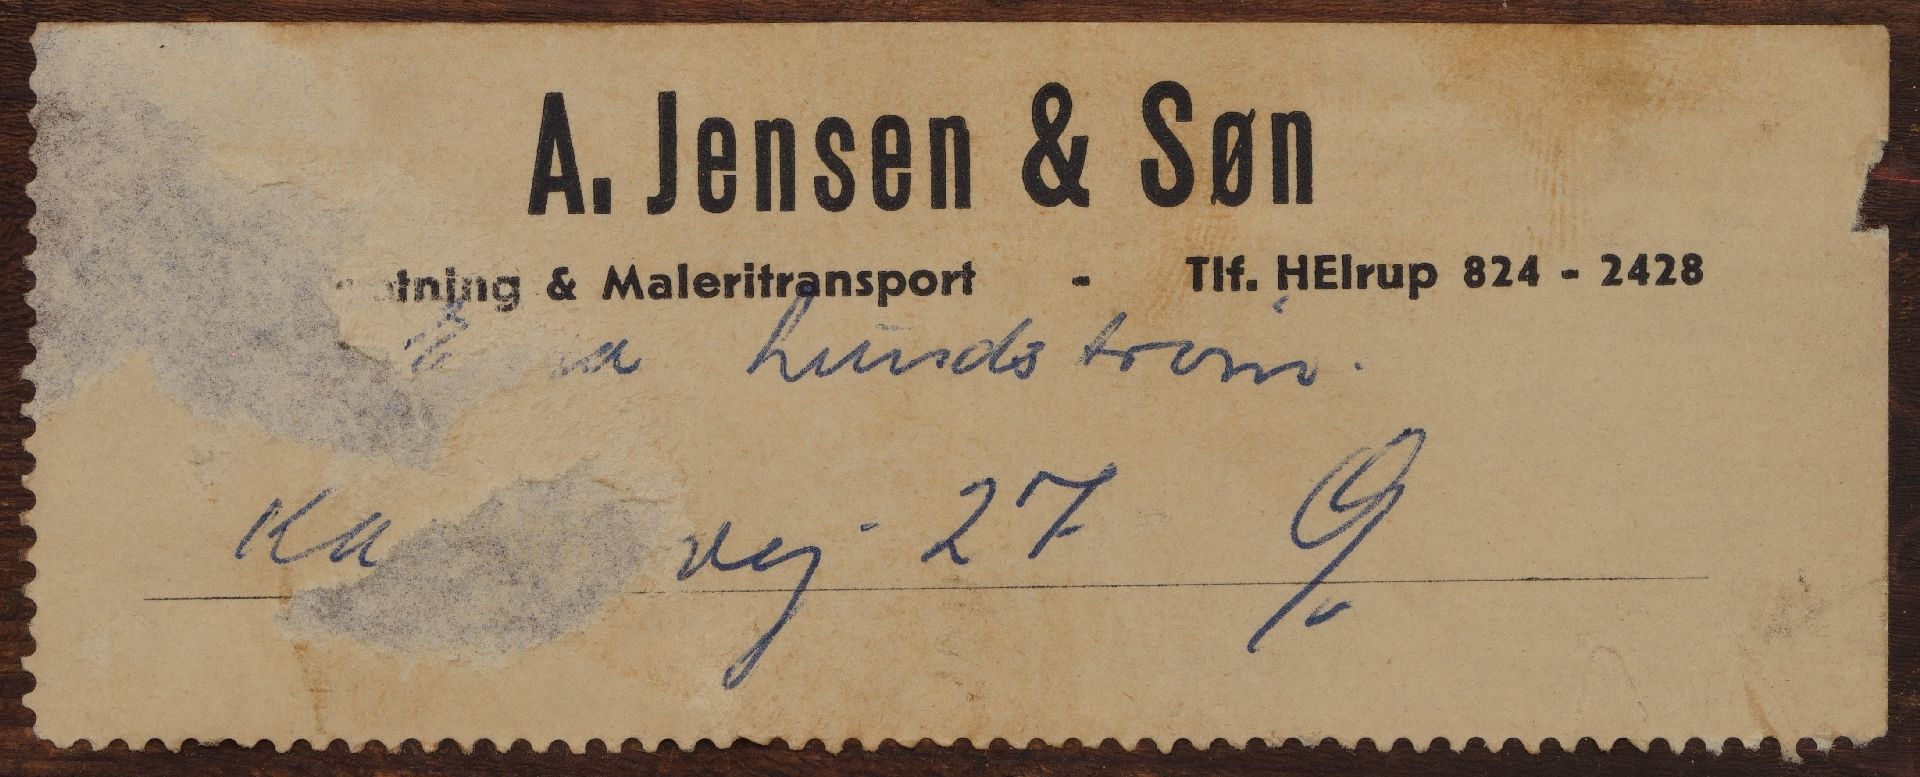 A. Jensen & Søn
& Maleritransport - Tlf. HElrup 824 - 2428
Lundstrøm.
vej 27 Ø.